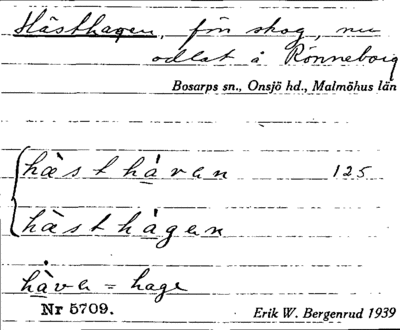 Hästhagen, förr skog, nu
odlat å Rönneborg
Bosarps sn., Onsjö hd., Malmöhus län
hæsthåvan 125
hæsthågen
håva = hage
Nr 5709.
Erik W. Bergenrud 1939